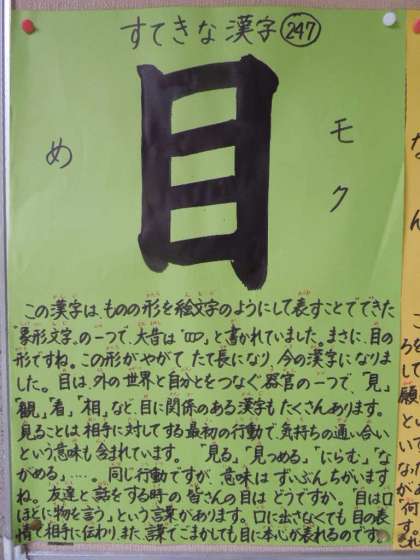 すてきな漢字 247
目
め
モク
この漢字は、ものの形を絵文字のようにして表すことでできた
「象形文字」の一つで、大昔は「」と書かれていました。まさに、目の
形ですね。この形がやがて たて長になり、今の漢字になりま
した。目は、外の世界と自分とをつなぐ器官の一つで、「見」
「観」「看」「相」など、目に関係のある漢字もたくさんあります。
見ることは、相手に対してする最初の行動で、気持ちの通い合い
という意味も含まれています。「見る」「見つめる」「にらむ」「な
がめる」・・・・。同じ行動ですが、意味は ずいぶんちがいます
ね。友達と話をする時の皆さんの目は どうですか。「目は口
ほどに物を言う」という言葉があります。口に出さなくても 目の表
情で相手に伝わり、また、言葉でごまかしても 目に本心が表れるのです。